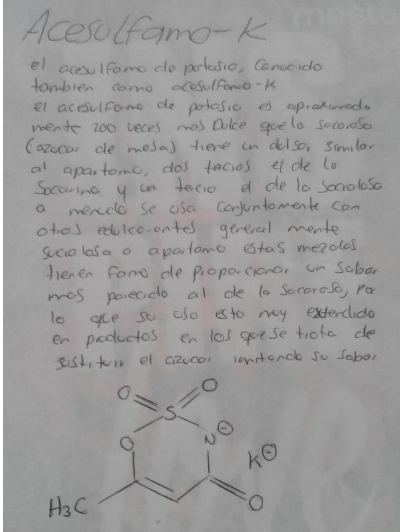 Acesulfamo-K
el acesulfamo de potasio, Conocido
tambien como acesulfamo-K
el acesulfamo de potasio es aproximada
mente 200 veces mas Dulce que la sacarosa
(azucar de mesa) tiene un dulsor similar
al apartamo, dos tecios el de la
Sacarina y un tecio el de la sacralosa
a menudo se usa conjuntamente con
otros edulcorantes general mente
sucralosa o apartamo estas mezclas
tienen fama de proporcionar un sabor
mas parecido al de la sacarosa, por
lo que su uso esta muy extendido
en productos en los que se trata de
sustituir el azucar imitando su sabor
O O
S
O N⊖
K⊖
H3C O